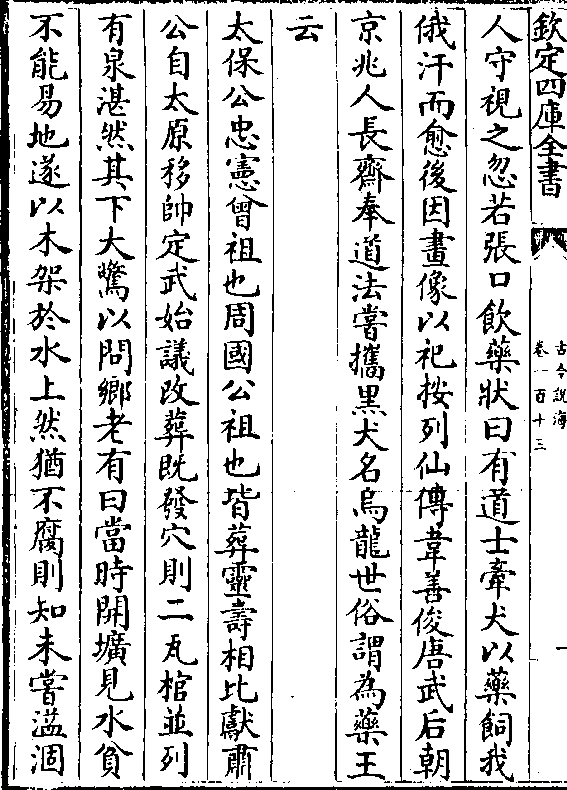 欽定四庫全書
古今說海
卷一百十三
一
人守視之忽若張口飲藥狀曰有道士牽犬以藥飼我
俄汗而愈後因畫像以祀按列仙傳韋善俊唐武后朝
京兆人長齋奉道法嘗攜黑犬名烏龍世俗謂為藥王
云
太保公忠憲曾祖也周國公祖也皆葬靈壽相比獻肅
公自太原移帥定武始議改葬既發穴則二瓦棺並列
有泉湛然其下大驚以問鄉老有曰當時開壙見水貧
不能易地遂以木架於水上然猶不腐則知未嘗溢涸